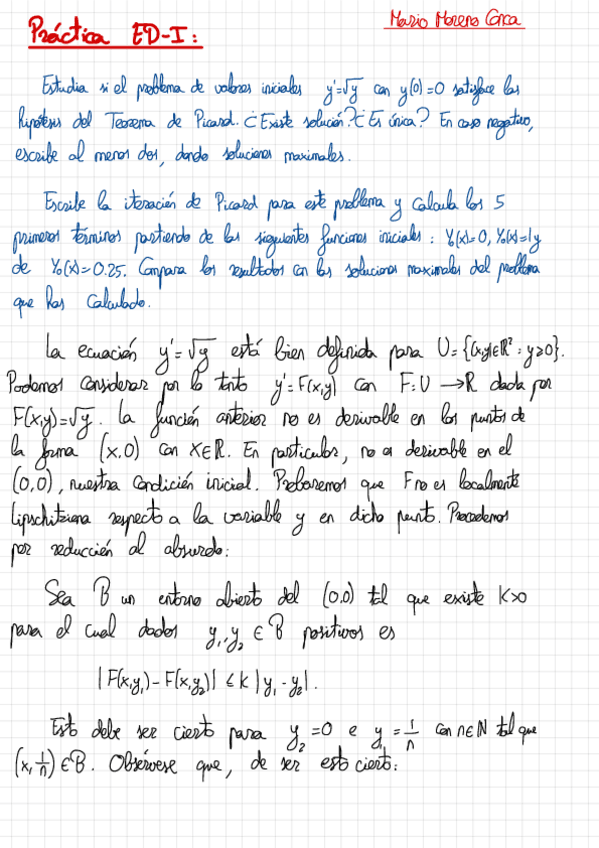 Práctica ED-I:
Mario Moreno Cerca
Estudia si el problema de valores iniciales y'=√y con y(0)=0 satisface las
hipótesis del Teorema de Picard. ¿Existe solución? ¿Es única? En caso negativo,
escribe al menos dos, dando soluciones maximales.
Escribe la iteración de Picard para este problema y calcula los 5
primeros términos partiendo de las siguientes funciones iniciales: Y₀(x)=0, Y₀(x)=1 y
de Y₀(x)=0.25. Compara los resultados con las soluciones maximales del problema
que has calculado.
La ecuación y'=√y está bien definida para U={(x,y)∈ℝ²: y≥0}.
Podemos considerar por lo tanto y'=F(x,y) con F:U→ℝ dada por
F(x,y)=√y. La función anterior no es derivable en los puntos de
la forma (x,0) con x∈ℝ. En particular, no es derivable en el
(0,0), nuestra condición inicial. Probaremos que F no es localmente
lipschitziana respecto a la variable y en dicho punto. Procedemos
por reducción al absurdo:
Sea B un entorno abierto del (0,0) tal que existe K>0
para el cual dados y₁,y₂ ∈ B positivos es
|F(x,y₁)-F(x,y₂)| ≤ K |y₁-y₂|.
Esto debe ser cierto para y₂=0 e y₁=1/n con n∈ℕ tal que
(x,1/n)∈B. Obsérvese que, de ser esto cierto: